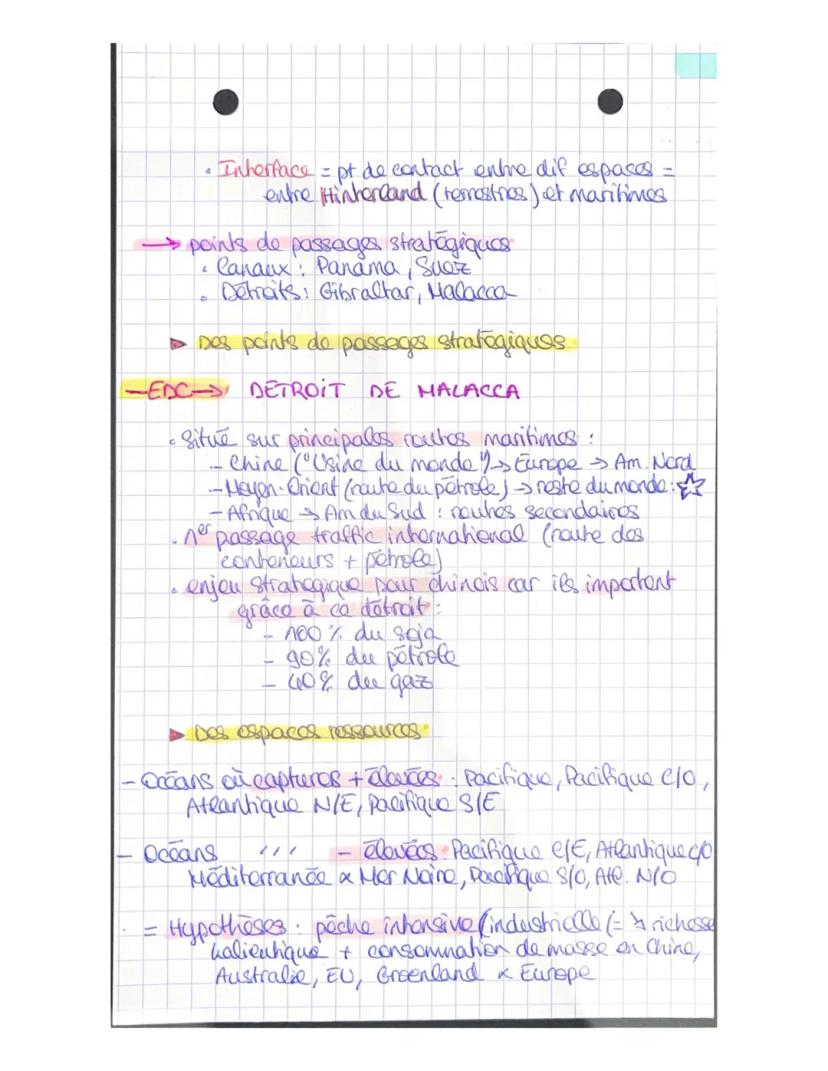 • Interface = pt de contact entre dif espaces =
entre Hinterland (terrestres) et maritimes
→ points de passages stratégiques
• Canaux : Panama, Suez
• Détroits : Gibraltar, Malacca
▶ Des points de passages stratégiques
—EDC→ DÉTROIT DE MALACCA
• Situé sur principales routes maritimes :
- Chine ("Usine du monde") → Europe → Am. Nord
- Moyen-Orient (route du pétrole) → reste du monde : ☆
- Afrique → Am du Sud : routes secondaires
• 1er passage traffic international (route des
conteneurs + pétrole)
• enjeu stratégique pour chinois car ils importent
grâce à ce détroit :
- 100 % du soja
- 90% du pétrole
- 40% du gaz
▶ Des espaces ressources
- Océans où captures + élevées : Pacifique, Pacifique C/O,
Atlantique N/E, Pacifique S/E
- Océans ,,, - élevées : Pacifique C/E, Atlantique C/O
Méditerranée & Mer Noire, Pacifique S/O, Atl. N/O
= Hypothèses : pêche intensive (industrielle (= ↘ richesse
halieutique + consommation de masse en Chine,
Australie, EU, Groenland & Europe